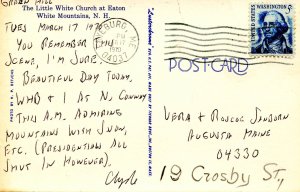 GREEN HILL
The Little White Church at Eaton
White Mountains, N. H.
TUES MARCH 17 1970
YOU REMEMBER THIS
SCENE, I'M SURE,
BEAUTIFUL DAY TODAY,
WHB & I AT N. CONWAY
THIS A.M. ADMIRING
MOUNTAINS WITH SNOW,
ETC. (PRESIDENTIAL ALL
SHUT IN HOWEVER).
Clyde
ME
PM
04037
UNITED STATES
WASHINGTON
5¢
POST CARD
VERA & ROSCOE SANBORN
AUGUSTA MAINE
04330
19 Crosby St,